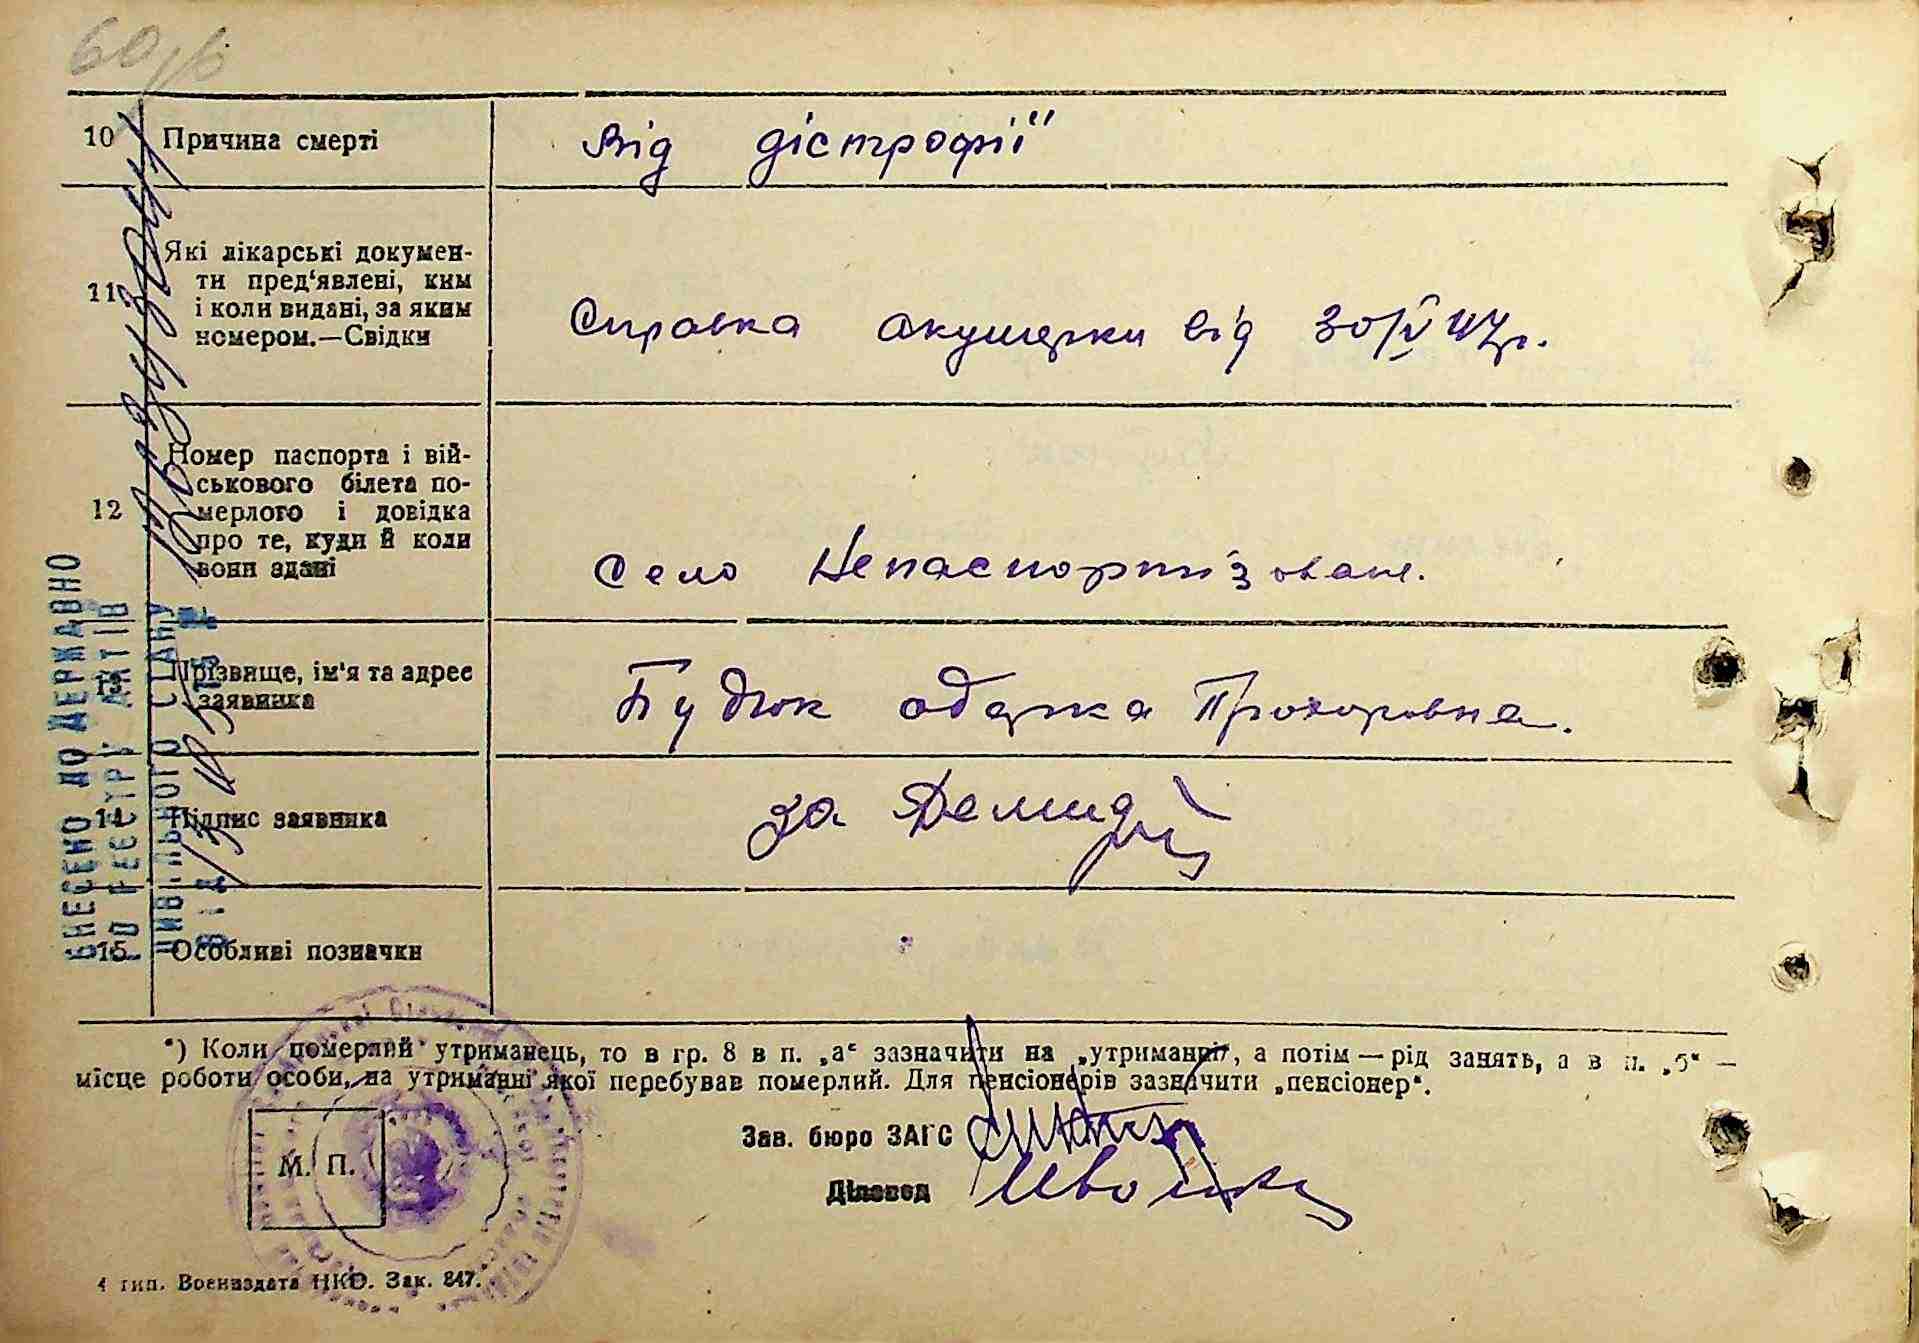 60
10 Причина смерті Від дістрофії"
11 Які лікарські докумен-
ти пред'явлені, ким
і коли видані, за яким
номером.—Свідки
Справка акушерки від 30/V 47 р.
12 Номер паспорта і вій-
ськового білета по-
мерлого і довідка
про те, куди й коли
вони здані
Село Непаспортізоване.
13 Прізвище, ім'я та адрес
заявника
Будюк одарка Прохоровна.
14 Підпис заявника за Демид
15 Особливі позначки
ВНЕСЕНО ДО ДЕРЖАВНО
ГО РЕЄСТРУ АКТІВ
ЦИВІЛЬНОГО СТАНУ
ВІД
*) Коли померлий утриманець, то в гр. 8 в п. „а“ зазначити на „утриманні“, а потім — рід занять, а в п. „б“ —
місце роботи особи, на утриманні якої перебував померлий. Для пенсіонерів зазначити „пенсіонер“.
Зав. бюро ЗАГС
М. П.
Діловод
4 тип. Воениздата НКО. Зак. 847.